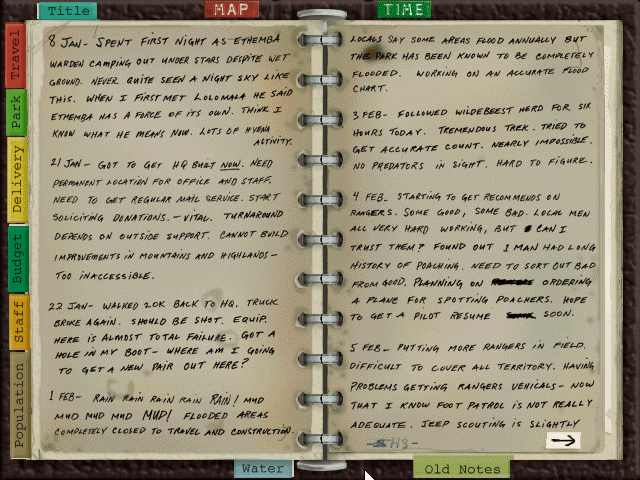 Title
MAP
TIME
Travel
Park
Delivery
Budget
Staff
Population
8 JAN- SPENT FIRST NIGHT AS ETHEMBA
WARDEN CAMPING OUT UNDER STARS DESPITE WET
GROUND. NEVER QUITE SEEN A NIGHT SKY LIKE
THIS. WHEN I FIRST MET LOLOMALA HE SAID
ETHEMBA HAS A FORCE OF ITS OWN. THINK I
KNOW WHAT HE MEANS NOW. LOTS OF HYENA
ACTIVITY.
21 JAN- GOT TO GET HQ BUILT NOW. NEED
PERMANENT LOCATION FOR OFFICE AND STAFF.
NEED TO GET REGULAR MAIL SERVICE. START
SOLICITING DONATIONS. - VITAL. TURNAROUND
DEPENDS ON OUTSIDE SUPPORT. CANNOT BUILD
IMPROVEMENTS IN MOUNTAINS AND HIGHLANDS-
TOO INACCESSIBLE.
22 JAN- WALKED 20K BACK TO HQ. TRUCK
BROKE AGAIN. SHOULD BE SHOT. EQUIP.
HERE IS ALMOST TOTAL FAILURE. GOT A
HOLE IN MY BOOT- WHERE AM I GOING
TO GET A NEW PAIR OUT HERE?
1 FEB- RAIN RAIN RAIN RAIN RAIN! MUD
MUD MUD MUD MUD! FLOODED AREAS
COMPLETELY CLOSED TO TRAVEL AND CONSTRUCTION.
LOCALS SAY SOME AREAS FLOOD ANNUALLY BUT
THE PARK HAS BEEN KNOWN TO BE COMPLETELY
FLOODED. WORKING ON AN ACCURATE FLOOD
CHART.
3 FEB- FOLLOWED WILDEBEEST HERD FOR SIX
HOURS TODAY. TREMENDOUS TREK. TRIED TO
GET ACCURATE COUNT. NEARLY IMPOSSIBLE.
NO PREDATORS IN SIGHT. HARD TO FIGURE.
4 FEB- STARTING TO GET RECOMMENDS ON
RANGERS. SOME GOOD, SOME BAD. LOCAL MEN
ALL VERY HARD WORKING, BUT CAN I
TRUST THEM? FOUND OUT 1 MAN HAD LONG
HISTORY OF POACHING. NEED TO SORT OUT BAD
FROM GOOD. PLANNING ON ORDERING
A PLANE FOR SPOTTING POACHERS. HOPE
TO GET A PILOT RESUME SOON.
5 FEB- PUTTING MORE RANGERS IN FIELD.
DIFFICULT TO COVER ALL TERRITORY. HAVING
PROBLEMS GETTING RANGERS VEHICALS- NOW
THAT I KNOW FOOT PATROL IS NOT REALLY
ADEQUATE. JEEP SCOUTING IS SLIGHTLY
Water
Old Notes